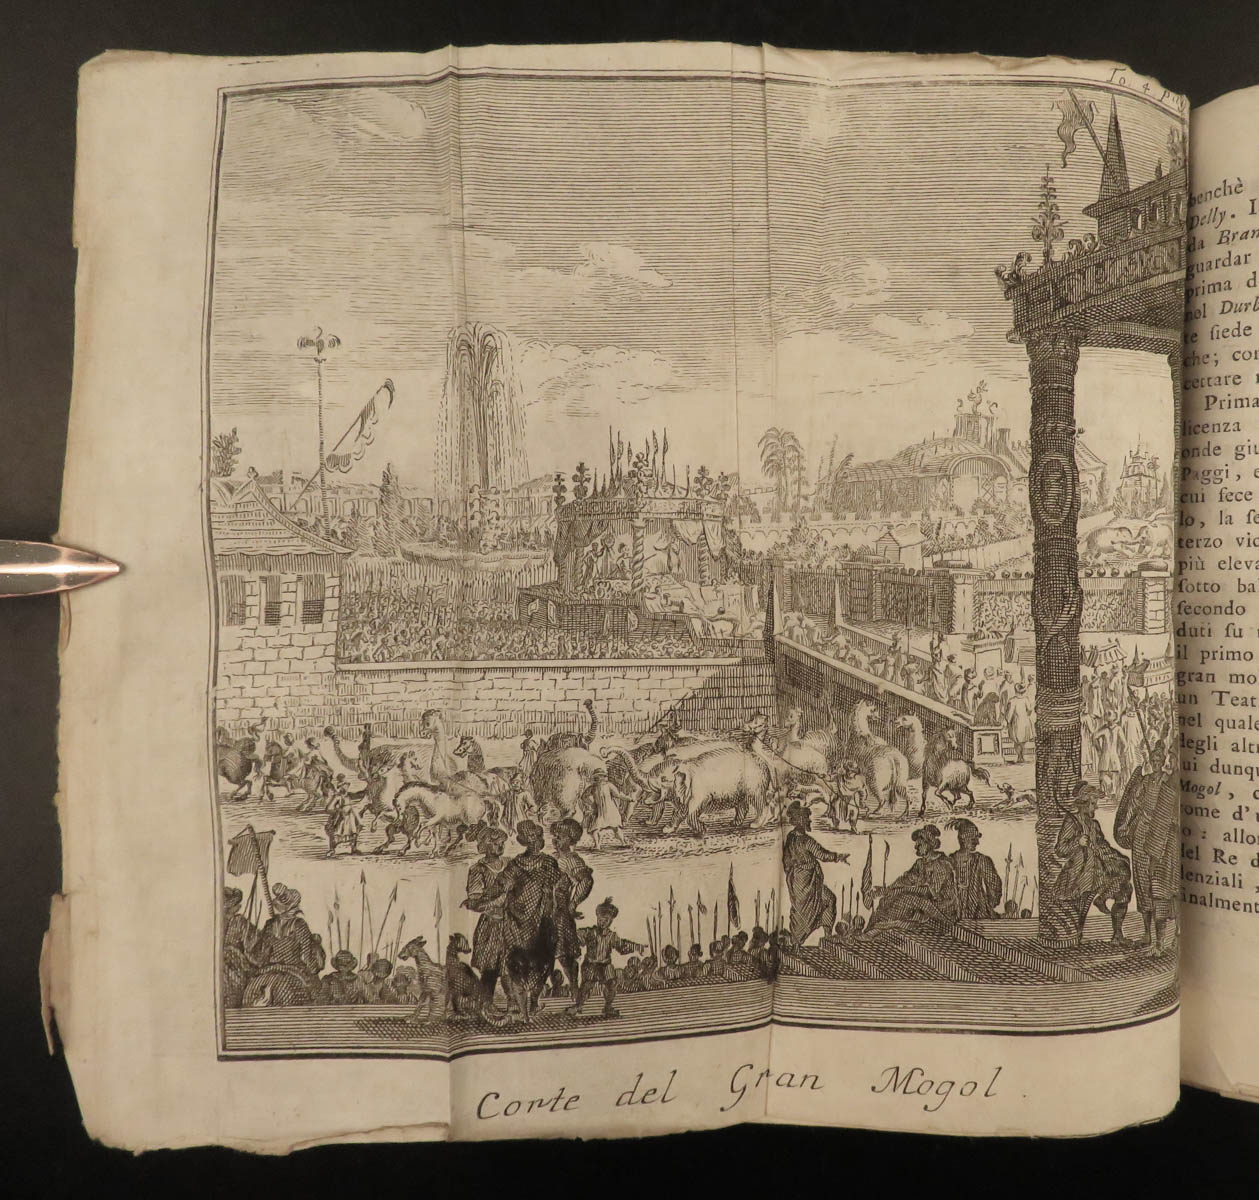 To. 4 pag
Corte del Gran Mogol.
benchè
Delly. I
da Bran
guardar
prima d
nol Durb
te siede
che; con
cettare
Prima
licenza
onde giu
Paggi, e
cui fece
lo, la se
terzo vic
più eleva
sotto ba
secondo
duti su
il primo
gran mo
un Teat
nel quale
degli alt
ui dunqu
Mogol, c
come d'
o: allo
del Re d
denziali,
finalment